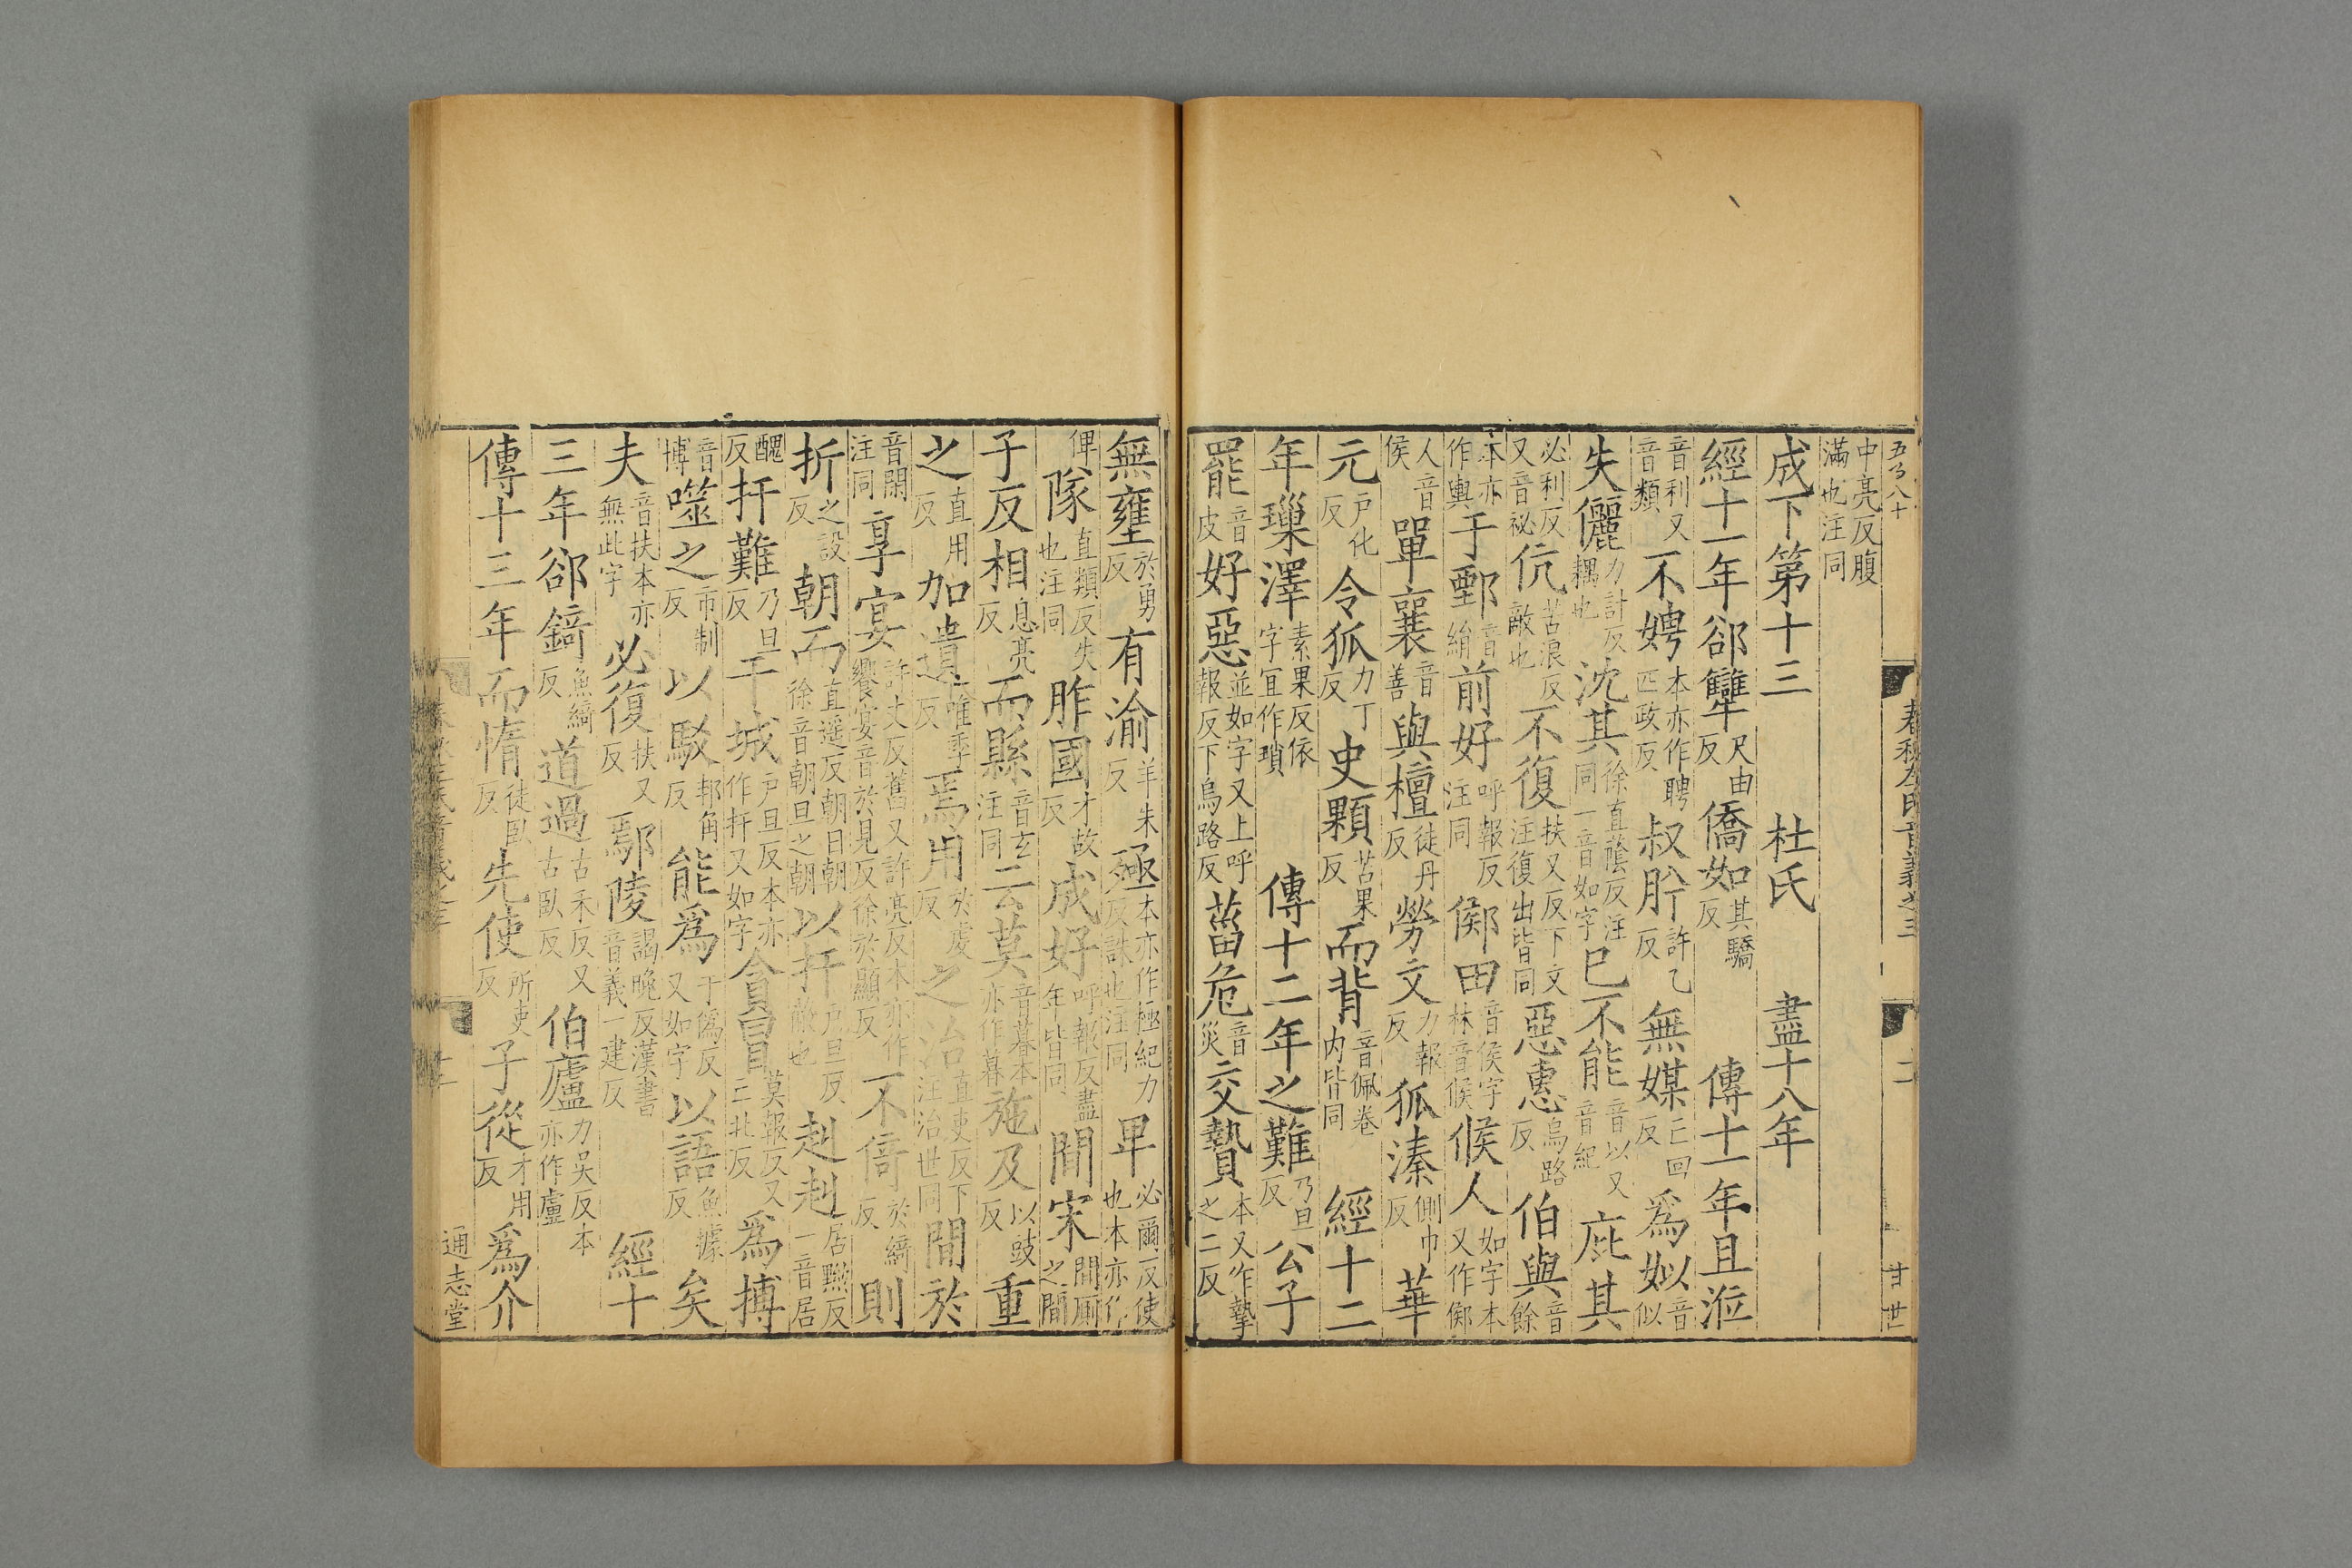 中亮反腹滿也注同
成下第十三 杜氏 盡十八年
經十一年郤犨尺由反僑如其驕反 傳十一年且涖
音利又音類不娉本亦作聘匹政反叔肸許乙反無媒亡回反爲姒音似
失儷力計反耦也沈其徐直蔭反注同一音如字已不能音以又音紀庇其
必利反又音祕伉苦浪反敵也不復扶又反下文注復出皆同惡惠烏路反伯與音餘
本亦作輿于鄄音絹前好呼報反注同鄇田音侯字林音候候人如字本又作鄇
人音侯單襄音善與檀徒丹反勞文力報反狐溱側巾反華
元戶化反令狐力丁反史顆苦果反而背音佩卷內皆同 經十二
年瑣澤素果反依字宜作瑣 傳十二年之難乃旦反公子
罷音皮好惡並如字又上呼報反下烏路反菑危音災交贄本又作摯之二反
無壅於勇反有渝羊朱反殛本亦作極紀力反誅也注同卑必爾反使也本亦作
俾隊直類反失也注同胙國才故反成好呼報反盡年皆同間宋間厠之間
子反相息亮反而縣音玄注同云莫音暮本亦作暮施及以豉反重
之直用反加遺唯季反焉用於虔反之治直吏反下注治世同間於
音閑注同享宴許丈反舊又許亮反本亦作饗宴音於見反徐於顯反不倚於綺反則
折之設反朝而直遥反朝日朝徐音朝旦之朝以扞戶旦反蔽也赳赳居黝反一音居
醜反扞難乃旦反干城戶旦反本亦作扞又如字貪冒莫報反又亡北反爲搏
音博噬之市制反以駮邦角反能爲于僞反又如字以語魚據反矣
夫音扶本亦無此字必復扶又反鄢陵謁晚反漢書音義一建反 經十
三年郤錡魚綺反道過古禾反又古臥反伯廬力吳反本亦作盧
傳十三年而惰徒臥反先使所吏反子從才用反爲介
通志堂